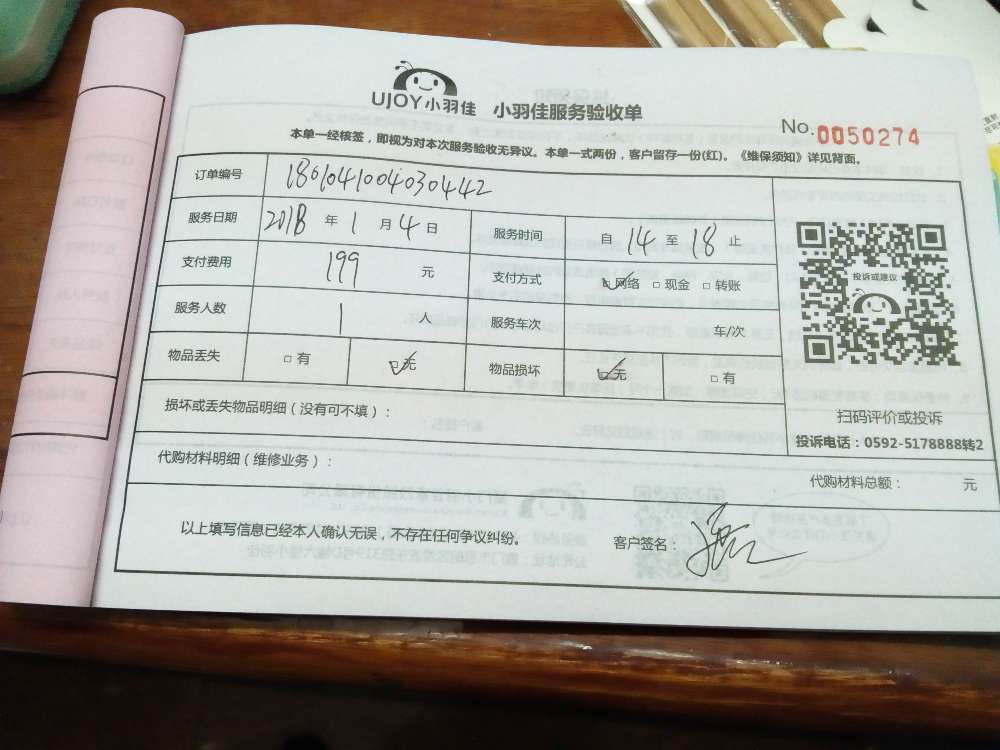 UJOY小羽佳 小羽佳服务验收单
No.0050274
本单一经核签，即视为对本次服务验收无异议。本单一式两份，客户留存一份(红)。《维保须知》详见背面。
订单编号 180104104030442
服务日期 2018 年 1 月 4 日 服务时间 自 14 至 18 止
支付费用 199 元 支付方式 网络 现金 转账
服务人数 1 人 服务车次 车/次
物品丢失 有 无 物品损坏 无 有
投诉或建议
扫码评价或投诉
投诉电话：0592-5178888转2
损坏或丢失物品明细（没有可不填）：
代购材料明细（维修业务）：
代购材料总额： 元
以上填写信息已经本人确认无误，不存在任何争议纠纷。 客户签名：